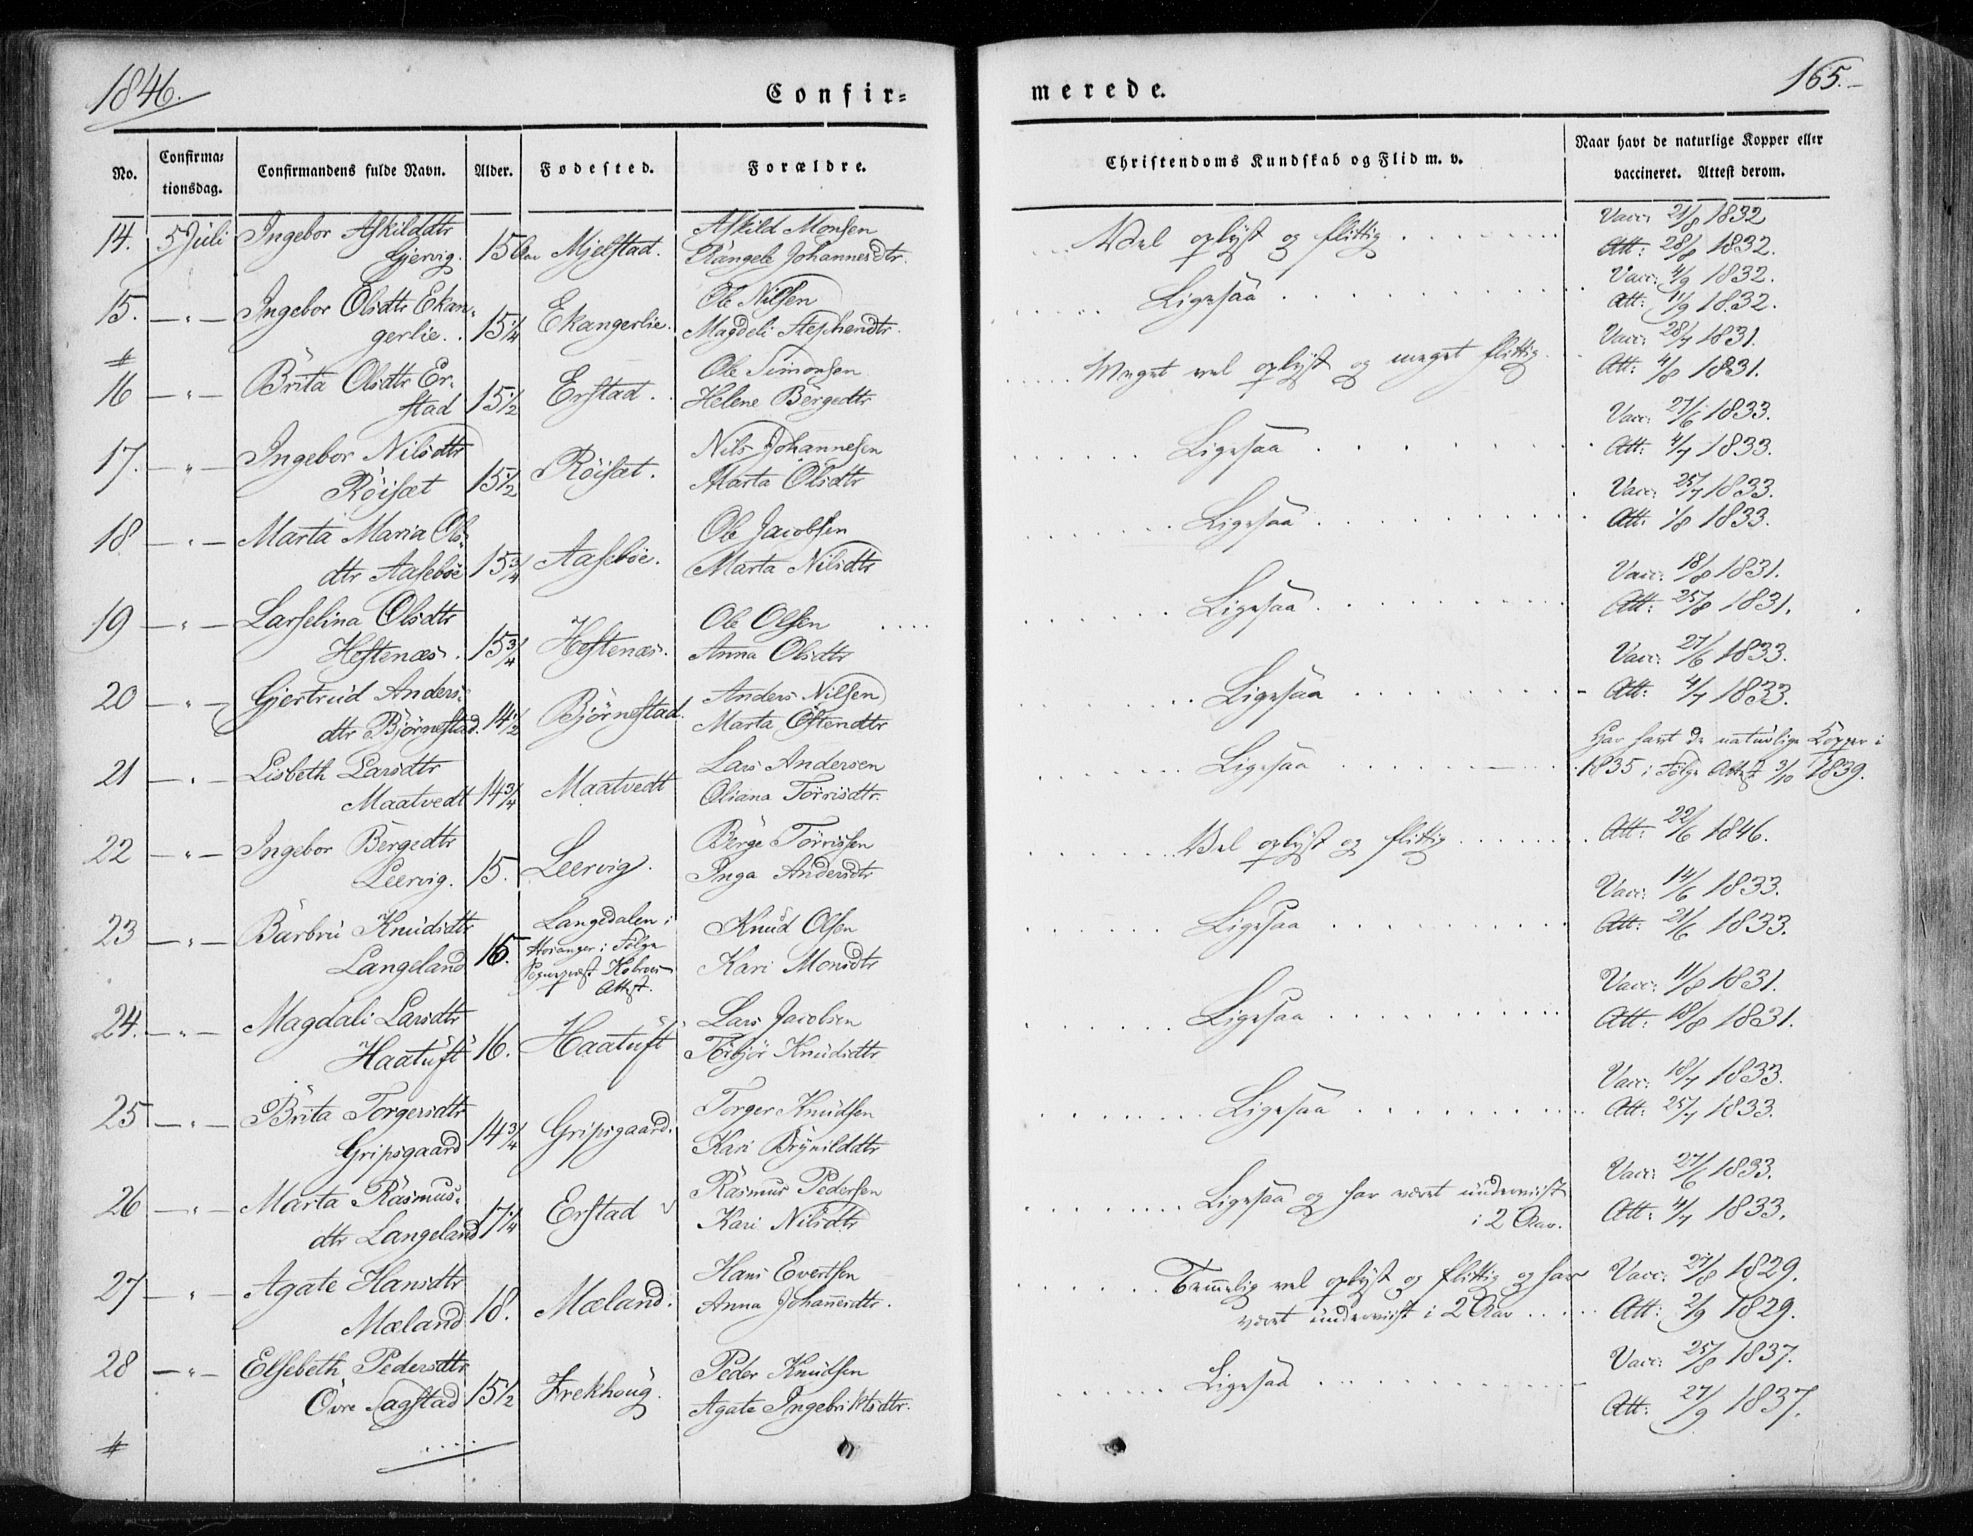 1846.
Confir=
merede.
165.
No.
Confirma=
tionsdag.
Confirmandens fulde Navn.
Alder.
Fødested.
Forældre.
Christendoms Kundskab og Flid m. v.
Naar havt de naturlige Kopper eller
vaccineret. Attest derom.
14. 5 Juli Ingebor Askilddtr
Gjervig. 15 Aar Mjelstad. Askild Monsen
Rangele Johannesdtr. Vel oplyst og flittig Vacc: 21/8 1832
Att: 28/8 1832.
15. — " — Ingebor Olsdtr Ekan-
gerlie. 15 1/4 Ekangerlie. Ole Nilsen
Magdeli Stephendtr. Ligesaa Vacc: 4/9 1832.
Att: 11/9 1832.
#
16 — " — Brita Olsdtr Er-
stad 15 1/2 Erstad. Ole Simonsen
Helene Børgedtr Meget vel oplyst og meget flittig Vacc: 28/7 1831.
Att: 4/8 1831.
17. — " — Ingebor Nilsdtr
Röisæt 15 1/2 Röisæt. Nils Johannesen
Marta Olsdtr Ligesaa Vacc: 27/6 1833.
Att: 4/7 1833.
18 — " — Marta Maria Ols-
dtr Aasebøe 15 3/4 Aasebøe. Ole Jacobsen
Marta Nilsdtr Ligesaa Vacc: 25/7 1833.
Att: 1/8 1833.
19 — " — Larselina Olsdtr
Hestenæs. 15 3/4 Hestenæs. Ole Olsen
Anna Olsdtr Ligesaa Vacc: 18/8 1831.
Att: 25/8 1831.
20 — " — Gjertrud Anders-
dtr Bjørnestad. 14 1/2 Bjørnestad. Anders Nilsen
Marta Ostendtr Ligesaa Vacc: 27/6 1833.
Att: 4/7 1833.
21 — " — Lisbeth Larsdtr
Maatvedt 14 3/4 Maatvedt Lars Andersen
Oliana Torrisdtr. Ligesaa Har havt de naturlige Kopper i
1835 i Følge Attest 3/10 1839.
22 — " — Ingebor Bergedtr
Leervig. 15. Leervig. Berge Torrisen
Inga Andersdtr Vel oplyst og flittig Att: 22/6 1846.
23 — " — Barbru Knudsdtr
Langeland 16. Langedalen i
Hosanger i Følge
Sognepræst
Attest. Knud Olsen
Kari Monsdtr Ligesaa Vacc: 14/6 1833.
Att: 21/6 1833.
24. — " — Magdali Larsdtr
Haatuft 16. Haatuft Lars Jacobsen
Torbjör Knudsdtr Ligesaa Vacc: 11/8 1831.
Att: 18/8 1831.
25 — " — Brita Torgersdtr
Gripsgaard 14 3/4 Gripsgaard. Torger Knudsen
Kari Brynilddtr Ligesaa Vacc: 18/7 1833.
Att: 25/7 1833.
26 — " — Marta Rasmus-
dtr Langeland 17 1/4 Erstad Rasmus Pedersen
Kari Nilsdtr Ligesaa og har været underviist
i 2 Aar. Vacc: 27/6 1833.
Att: 4/7 1833.
27 — " — Agate Hansdtr
Mæland 18. Mæland. Hans Evertsen
Anna Johannesdtr. Temmelig vel oplyst og flittig og har
været underviist i 2 Aar Vacc: 1829.
Att: 2/9 1829.
28 — " — Elsebeth Pedersdtr
Øvre Sagstad 15 1/2 Frekhoug. Peder Knudsen
Agate Ingebriktsdtr. Ligesaa Vacc: 25/8 1837.
Att: 27/9 1837.
#